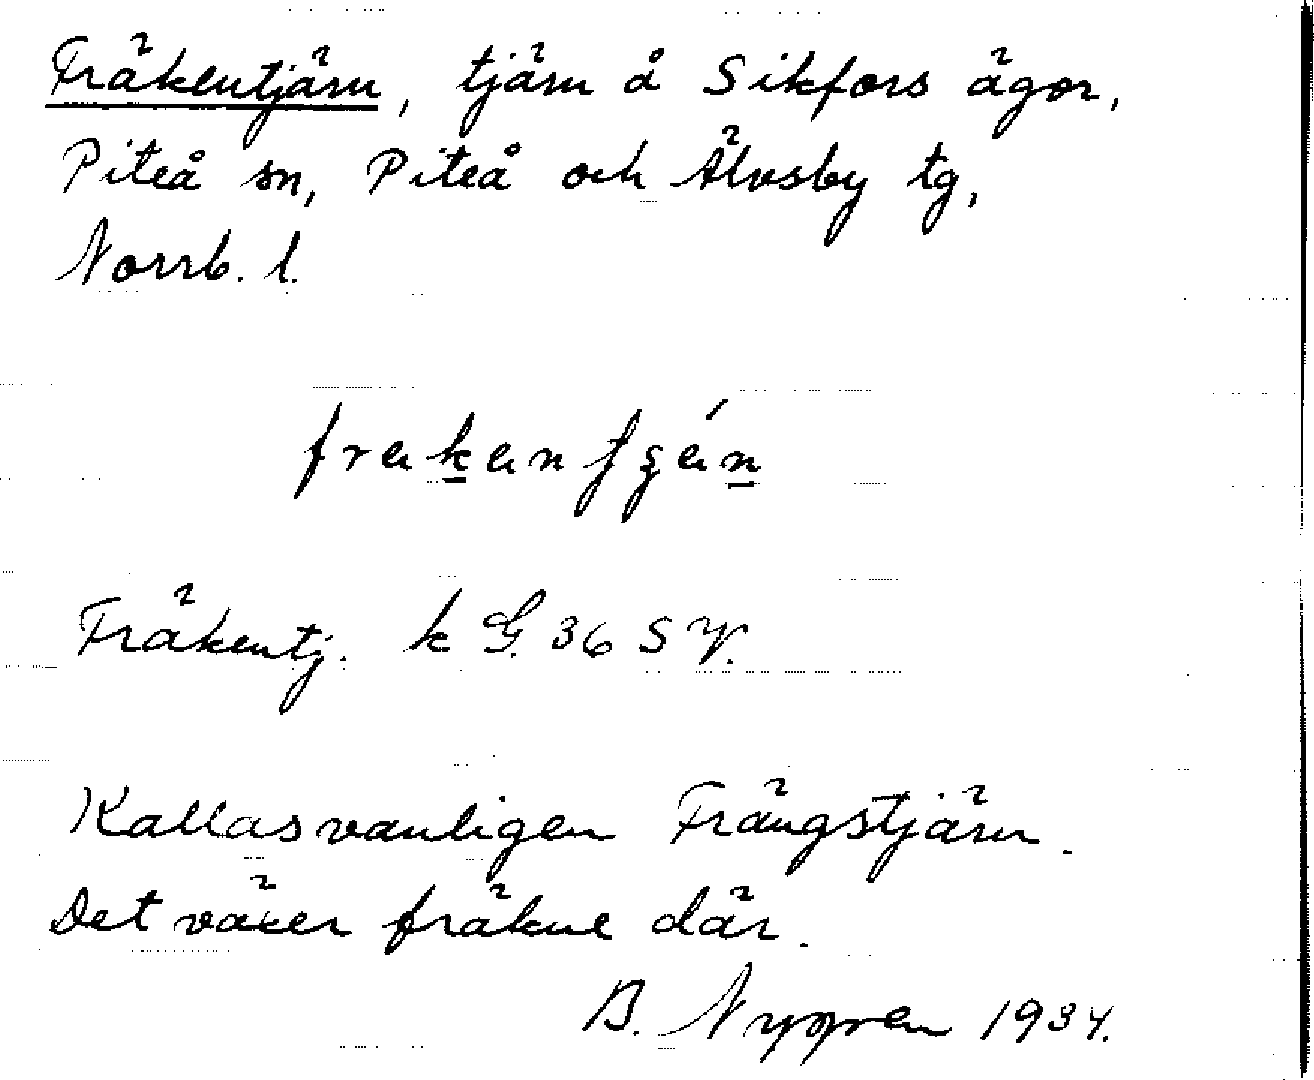 Fräkentjärn, tjärn å Sikfors ägor,
Piteå sn, Piteå och Älvsby tg,
Norrb. l.
Fräkentj. k G. 36 S V.
Kallas vanligen Frängstjärn.
Det växer fräkne där.
B. Nygren 1934.